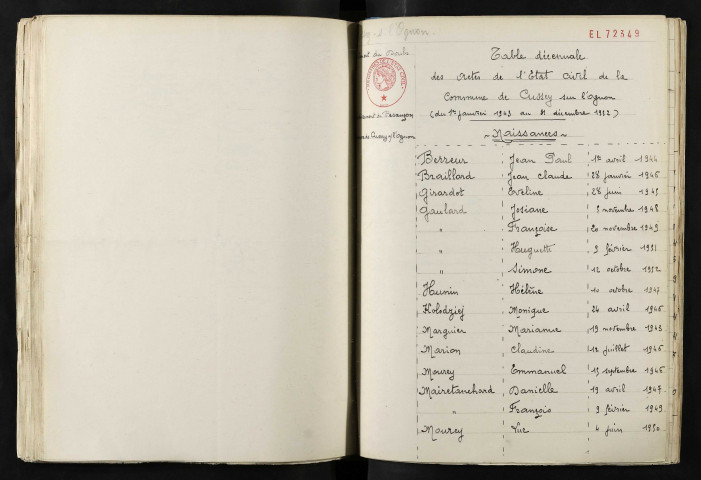 EL 72349
Table décennale
des Actes de l'Etat Civil de la
Commune de Cussey sur l'Ognon
(du 1er janvier 1943 au 31 décembre 1952)
~ Naissances ~
Berreur Jean Paul 1er avril 1944
Braillard Jean Claude 28 janvier 1946
Girardot Eveline 28 juin
Gaulard Josiane novembre 1948
" Françoise 20 novembre 1949
" Huguette 9 février 1951
" Simone 12 octobre 1952
Hunin Hélène octobre 1947
Kolodziej Monique 24 avril 1946
Marguier Marianne 19 novembre 1943
Marion Claudine 12 juillet 1946
Mourey Emmanuel septembre 1946
Mairetanchard Danielle 19 avril 1947
" François 9 février 1949
Mourey Luc 4 juin 1950